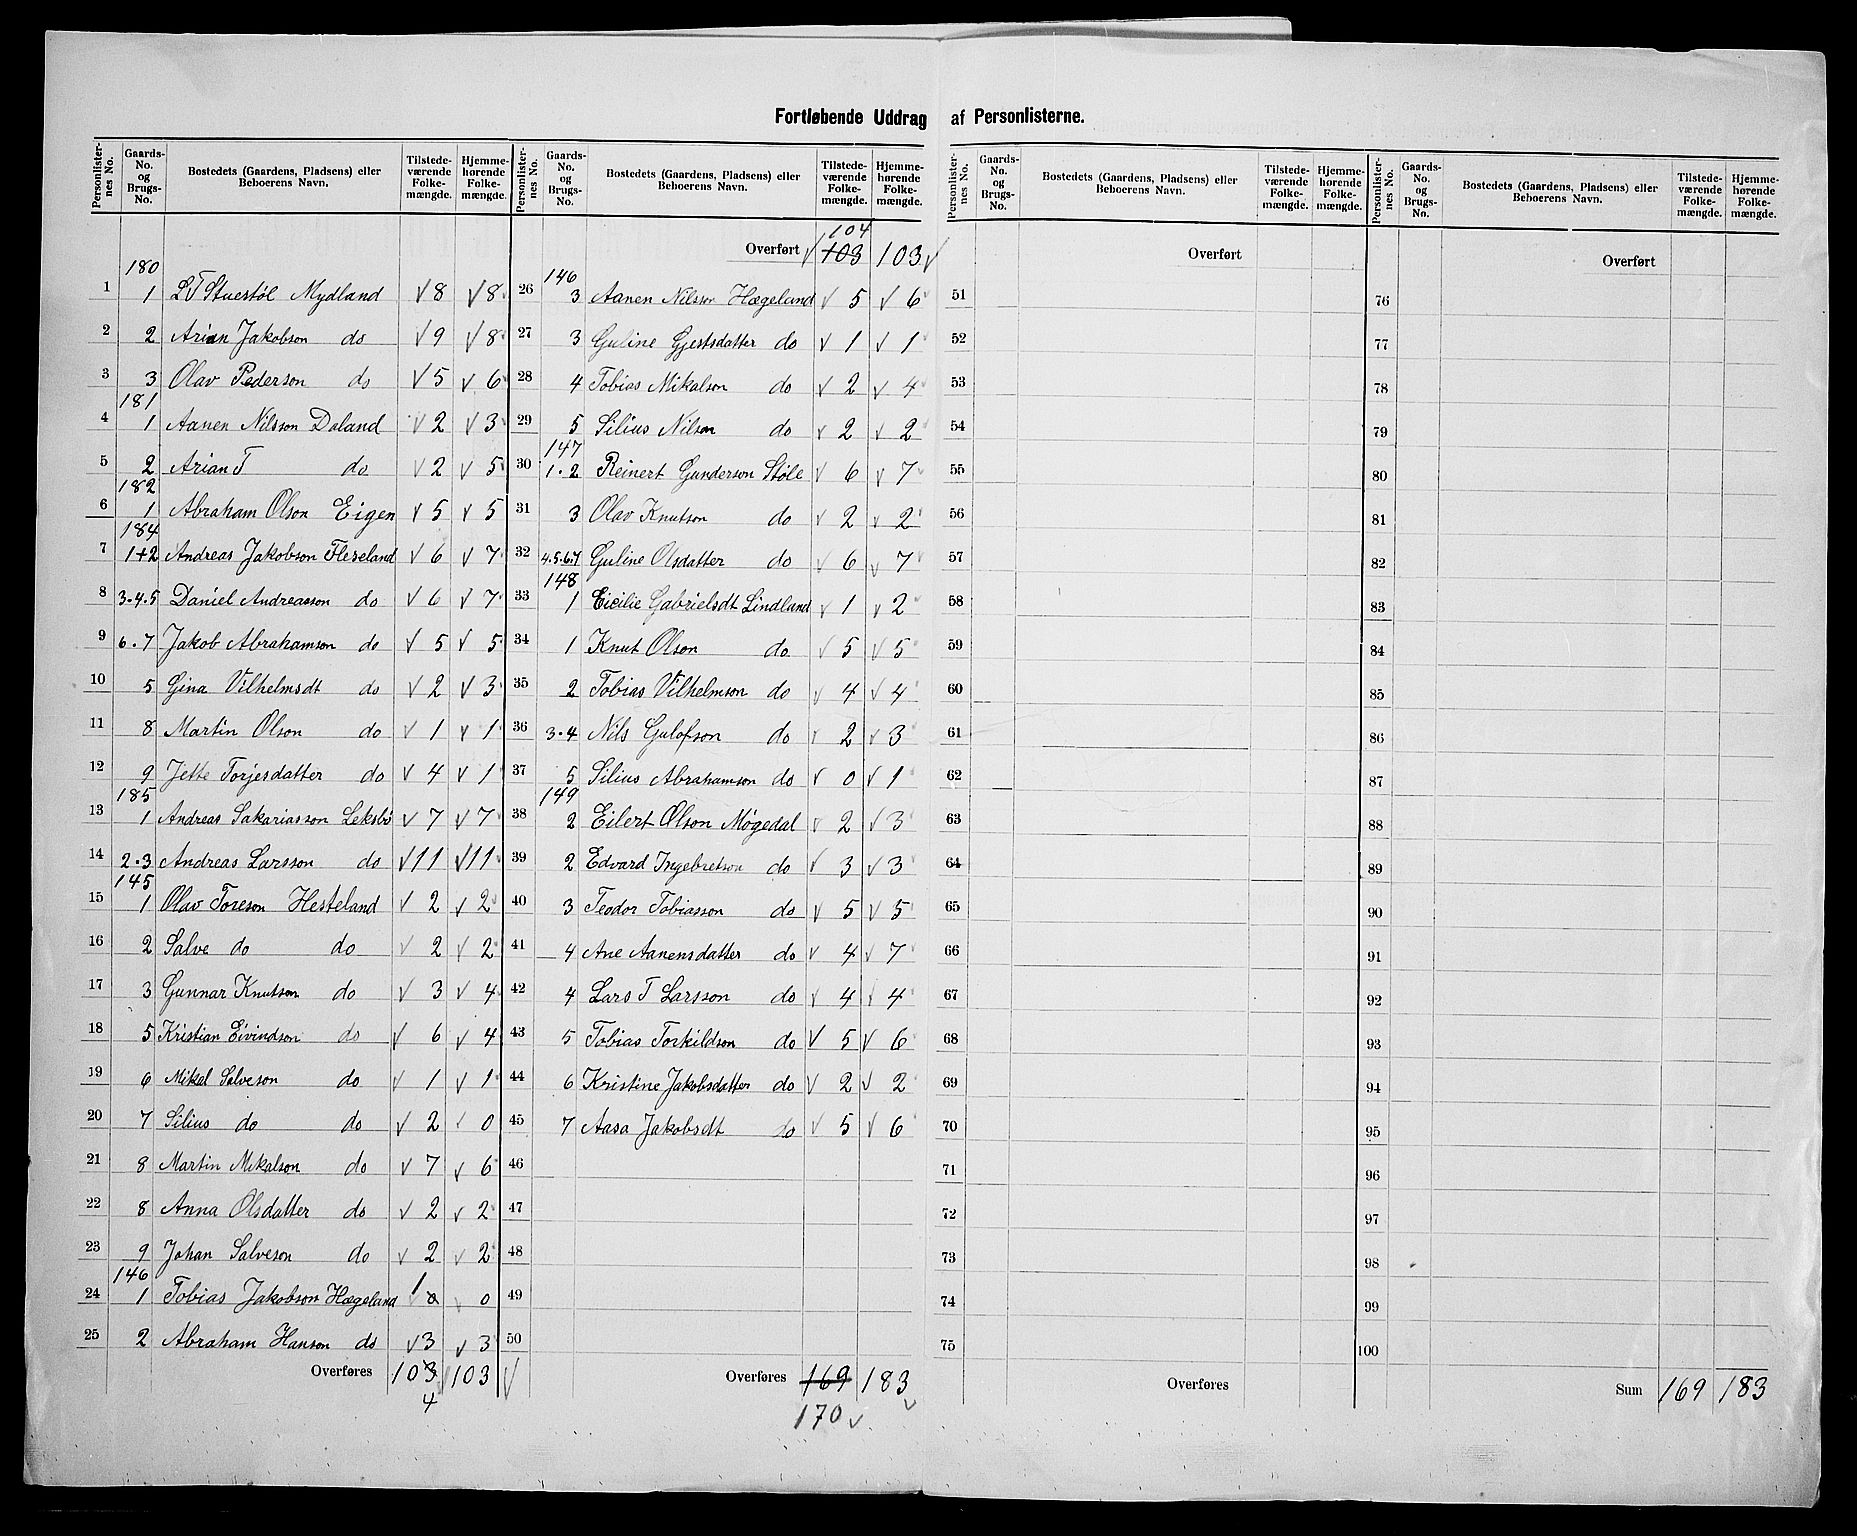 Fortløbende Uddrag af Personlisterne.
Personlister-nes No. Gaards-No. og Brugs-No. Bostedets (Gaardens, Pladsens) eller Beboerens Navn. Tilstede-værende Folke-mængde. Hjemme-hørende Folke-mængde.
180
1 1 L T Stuestøl Mydland √8 √8
2 2 Arian Jakobson do √9 √8
3 3 Olav Pederson do √5 √6
181
4 1 Aanen Nilsson Daland √2 √3
5 2 Arian T do √2 √5
182
6 1 Abraham Olson Eigen √5 √5
184
7 1+2 Andreas Jakobson Flereland √6 √7
8 3.4.5 Daniel Andreasson do √6 √7
9 6.7 Jakob Abrahamson do √5 √5
10 5 Gina Vilhelmsdt do √2 √3
11 8 Martin Olson do √1 √1
12 9 Jette Torjesdatter do √4 √1
185
13 1 Andreas Sakariasson Leksbö √7 √7
14 2.3 Andreas Larsson do √11 √11
145
15 1 Olav Toreson Hesteland √2 √2
16 2 Salve do do √2 √2
17 3 Gunnar Knutson do √3 √4
18 5 Kristian Eivindson do √6 √4
19 6 Mikal Salveson do √1 √1
20 7 Silius do do √2 √0
21 8 Martin Mikalson do √7 √6
22 8 Anna Olsdatter do √2 √2
23 9 Johan Salveson do √2 √2
146
24 1 Tobias Jakobson Hægeland 1 0 √0
25 2 Abraham Hanson do √3 √3
Overføres 103 √103 √
4
Personlister-nes No. Gaards-No. og Brugs-No. Bostedets (Gaardens, Pladsens) eller Beboerens Navn. Tilstede-værende Folke-mængde. Hjemme-hørende Folke-mængde.
104
Overført √103 103√
146
26 3 Aanen Nilsson Hægeland √5 √6
27 3 Guline Gjestsdatter do √1 √1
28 4 Tobias Mikalson do √2 √4
29 5 Silius Nilson do √2 √2
147
30 1.2 Reinert Gunderson Støle √6 √7
31 3 Olav Knutson do √2 √2
32 4.5.6.7 Guline Olsdatter do √6 √7
148
33 1 Eicilie Gabrielsdt Lindland √1 √2
34 1 Knut Olson do √5 √5
35 2 Tobias Vilhelmson do √4 √4
36 3.4 Nils Gulofson do √2 √3
37 5 Silius Abrahamson do √0 √1
149
38 2 Eilert Olson Møgedal √2 √3
39 2 Edvard Ingebretson do √3 √3
40 3 Teodor Tobiasson do √5 √5
41 4 Ane Aanensdatter do √4 √7
42 4 Lars T Larsson do √4 √4
43 5 Tobias Torkildson do √5 √6
44 6 Kristine Jakobsdatter do √2 √2
45 7 Aasa Jakobsdt do √5 √6
46
47
48
49
50
Overføres 169 183 √
170 √
Personlister-nes No. Gaards-No. og Brugs-No. Bostedets (Gaardens, Pladsens) eller Beboerens Navn. Tilstede-værende Folke-mængde. Hjemme-hørende Folke-mængde.
Overført
51
52
53
54
55
56
57
58
59
60
61
62
63
64
65
66
67
68
69
70
71
72
73
74
75
Overføres
Personlister-nes No. Gaards-No. og Brugs-No. Bostedets (Gaardens, Pladsens) eller Beboerens Navn. Tilstede-værende Folke-mængde. Hjemme-hørende Folke-mængde.
Overført
76
77
78
79
80
81
82
83
84
85
86
87
88
89
90
91
92
93
94
95
96
97
98
99
100
Sum 169 183